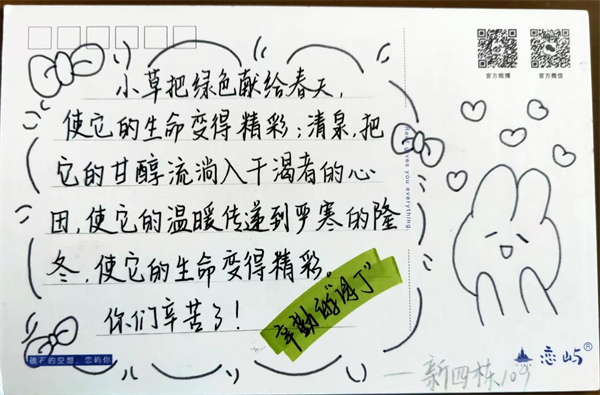 官方微博
官方微信
小草把绿色献给春天,
使它的生命变得精彩;清泉,把
它的甘醇流淌入干渴者的心
田,使它的温暖传递到严寒的隆
冬,使它的生命变得精彩。
你们辛苦了!
辛勤的"园丁"
磁石的空想,恋屿你
恋屿®
——新四栋109